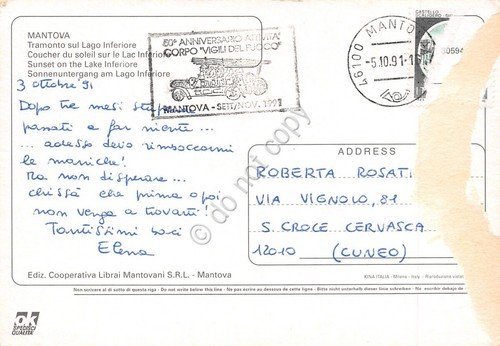 MANTOVA
Tramonto sul Lago Inferiore
Coucher du soleil sur le Lac Inferiore
Sunset on the Lake Inferiore
Sonnenuntergang am Lago Inferiore
50° ANNIVERSARIO ATTIVITÀ
CORPO "VIGILI DEL FUOCO"
MANTOVA - SETT/NOV. 1991
46100 MANTO
-5.10.91-1
3 ottobre 91
Dopo tre mesi
passati a far niente...
... adesso devo rimboccarmi
le maniche!
Ma non disperare...
chissà che prima o poi
non venga a trovarti!
Tantissimi baci
Elena
ADDRESS
ROBERTA ROSATI
VIA VIGNOLO, 81
S. CROCE CERVASCA
12010 (CUNEO)
do not copy
Ediz. Cooperativa Librai Mantovani S.R.L. - Mantova
©INA ITALIA - Milano - Italy - Riproduzione vietat
Non scrivere al di sotto di questa riga - Do not write below this line - Ne pas écrire au dessous de cette ligne - Bitte nicht unterhalb dieser linie schreiben - No escribir debajo de
ok
SPEDISCI
QUALITÀ